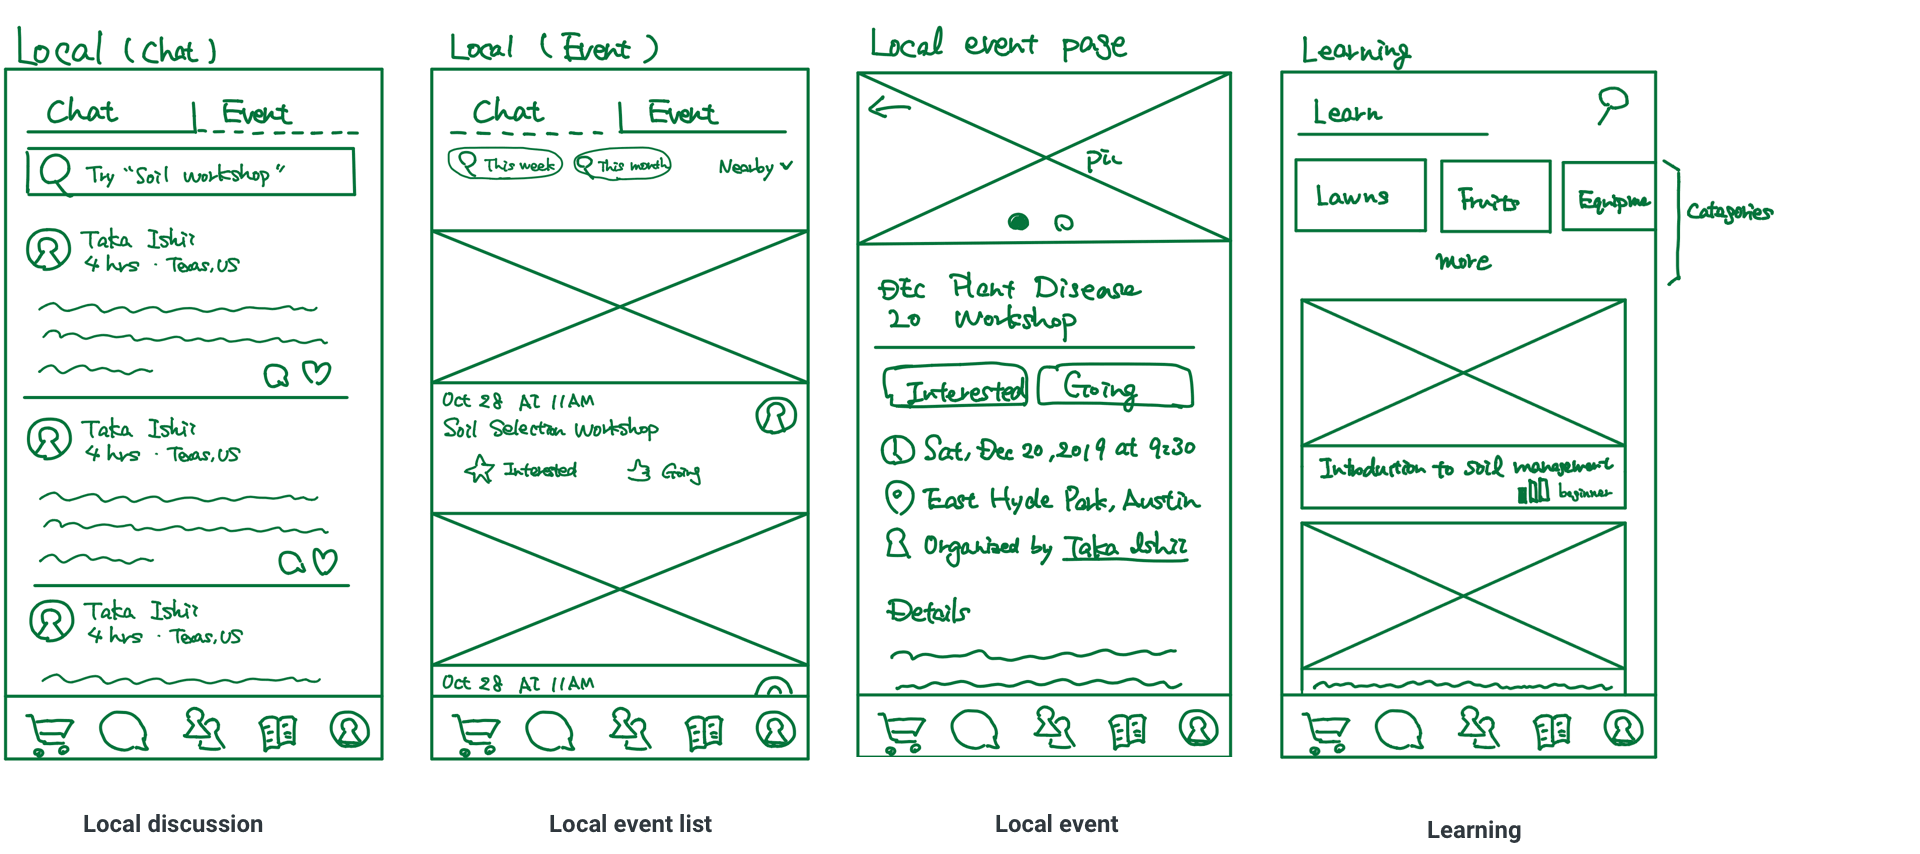 Local (Chat)
Chat
Event
Try "Soil workshop"
Taka Ishii
4 hrs · Texas, US
Taka Ishii
4 hrs · Texas, US
Taka Ishii
4 hrs · Texas, US
Local discussion
Local (Event)
Chat
Event
This week
This month
Nearby
Oct 28 AT 11AM
Soil Selection Workshop
Interested
Going
Oct 28 AT 11AM
Local event list
Local event page
pic
DEC Plant Disease
20 Workshop
Interested
Going
Sat, Dec 20, 2019 at 9:30
East Hyde Park, Austin
Organized by Taka Ishii
Details
Local event
Learning
Learn
Lawns
Fruits
Equipme
Catagories
more
Introduction to soil management
beginner
Learning